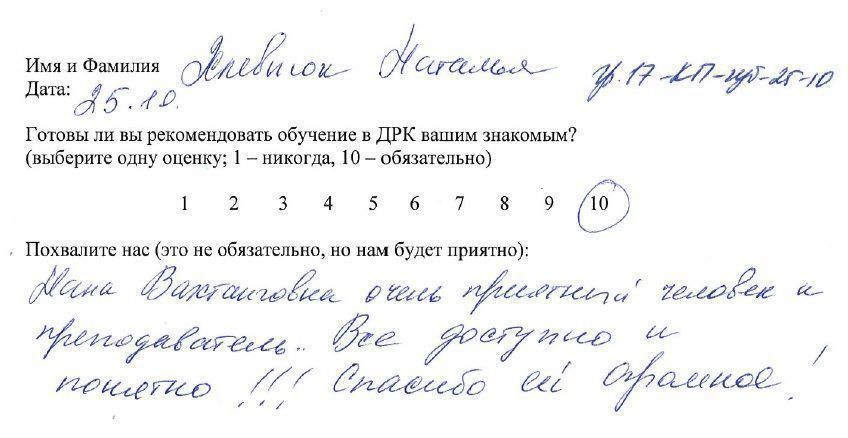 Имя и Фамилия Хлевнюк Наталья гр.17-КП-пуб-25-10
Дата: 25.10.
Готовы ли вы рекомендовать обучение в ДРК вашим знакомым?
(выберите одну оценку; 1 – никогда, 10 – обязательно)
1 2 3 4 5 6 7 8 9 10
Похвалите нас (это не обязательно, но нам будет приятно):
Нана Вахтанговна очень приятный человек и
преподаватель.. Все доступно и
понятно !!! Спасибо ей огромное!